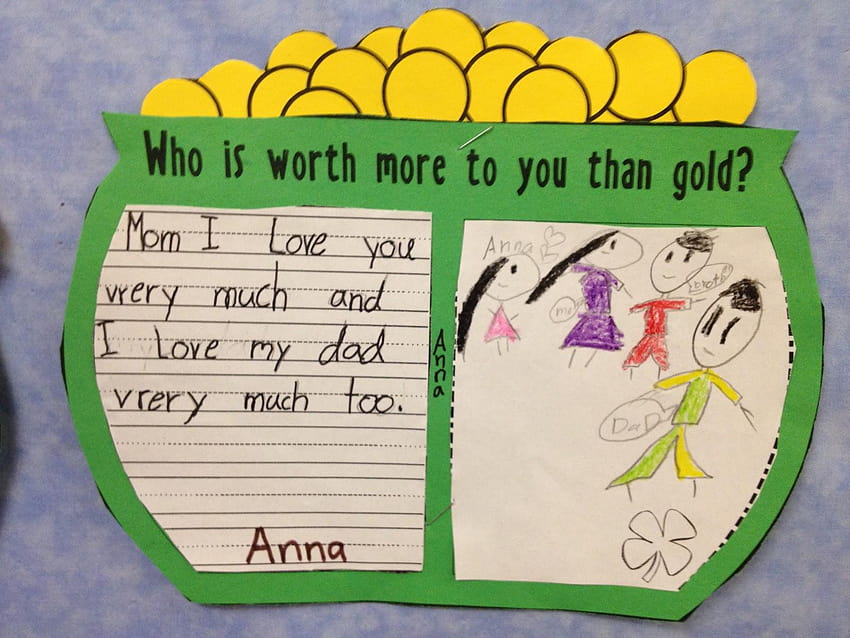 Who is worth more to you than gold?
Mom I Love you
vrery much and
I Love my dad
vrery much too.
Anna
Anna
Anna
mo
broth
DaD